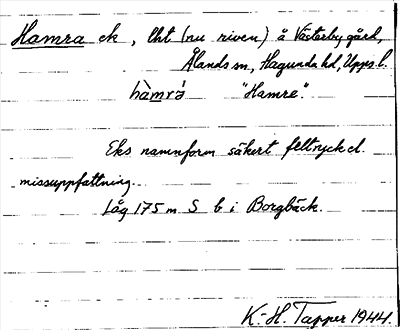 Hamra ek, lht (nu riven) å Västerby gård,
Ålands sn, Hagunda hd, Upps. l.
hàmrá "Hamre".
Eks namnform säkert feltryck el.
missuppfattning.
Låg 175 m S b i Borgbäck.
K.-H. Tapper 1944.